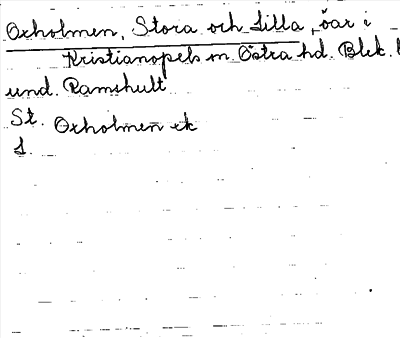 Oxholmen, Stora och Lilla, öar i
Kristianopels sn. Östra hd. Blek.
und. Ramshult
St. Oxholmen ek
L.